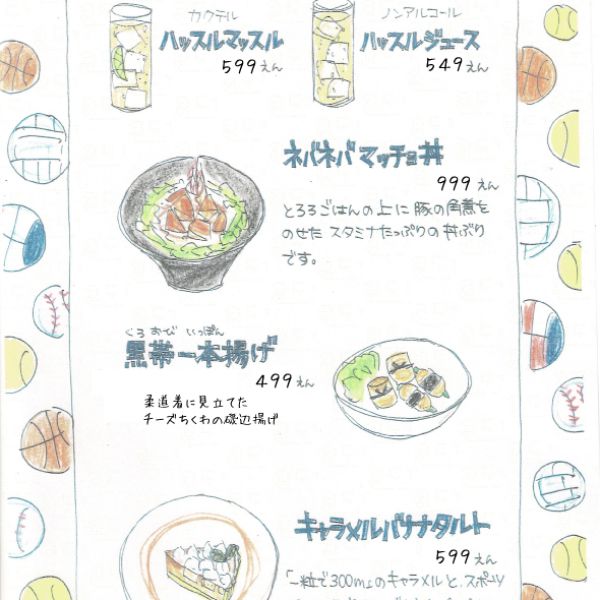 カクテル
ハッスルマッスル
599えん
ノンアルコール
ハッスルジュース
549えん
ネバネバマッチョ丼
999えん
とろろごはんの上に豚の角煮を
のせた スタミナたっぷりの丼ぶり
です。
くろ おび いっぽん
黒帯一本揚げ
499えん
柔道着に見立てた
チーズちくわの磯辺揚げ
キャラメルバナナタルト
599えん
「一粒で300m」のキャラメルと、スポーツ